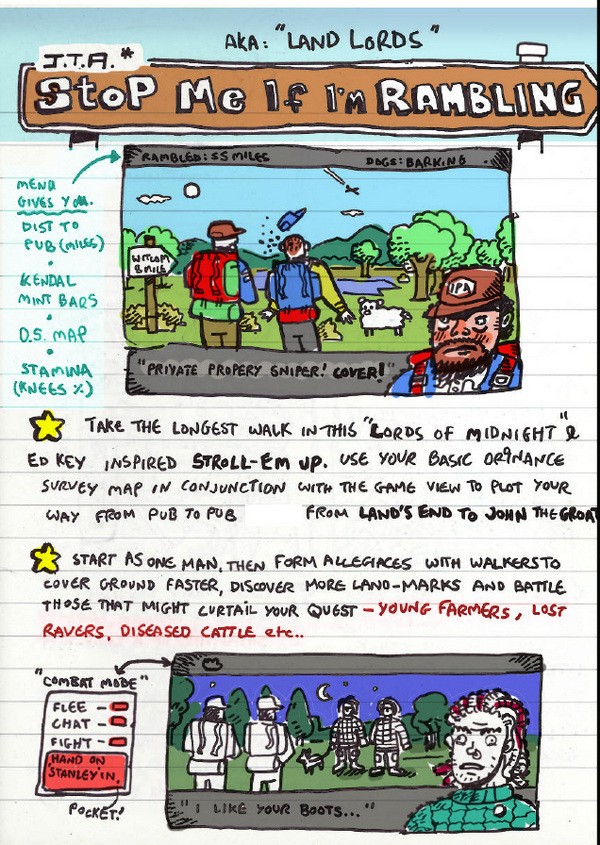 AKA: "LAND LORDS"
J.T.A.*
STOP ME If I'm RAMBLING
RAMBLED: 55 MILES
DOGS: BARKING
MENU
GIVES YOU.
DIST TO
PUB (MILES)
•
KENDAL
MINT BARS
•
O.S. MAP
•
STAMINA
(KNEES %)
WITCOM
8 MILE
IPA
"PRIVATE PROPERY SNIPER! COVER!"
TAKE THE LONGEST WALK IN THIS "LORDS OF MIDNIGHT" &
ED KEY INSPIRED STROLL-EM UP. USE YOUR BASIC ORDNANCE
SURVEY MAP IN CONJUNCTION WITH THE GAME VIEW TO PLOT YOUR
WAY FROM PUB TO PUB FROM LAND'S END TO JOHN THE GROAT
START AS ONE MAN, THEN FORM ALLEGIACES WITH WALKERS TO
COVER GROUND FASTER, DISCOVER MORE LAND-MARKS AND BATTLE
THOSE THAT MIGHT CURTAIL YOUR QUEST - YOUNG FARMERS, LOST
RAVERS, DISEASED CATTLE etc..
"COMBAT MODE"
FLEE -
CHAT -
FIGHT -
HAND ON
'STANLEY' IN.
POCKET!
"I LIKE YOUR BOOTS..."